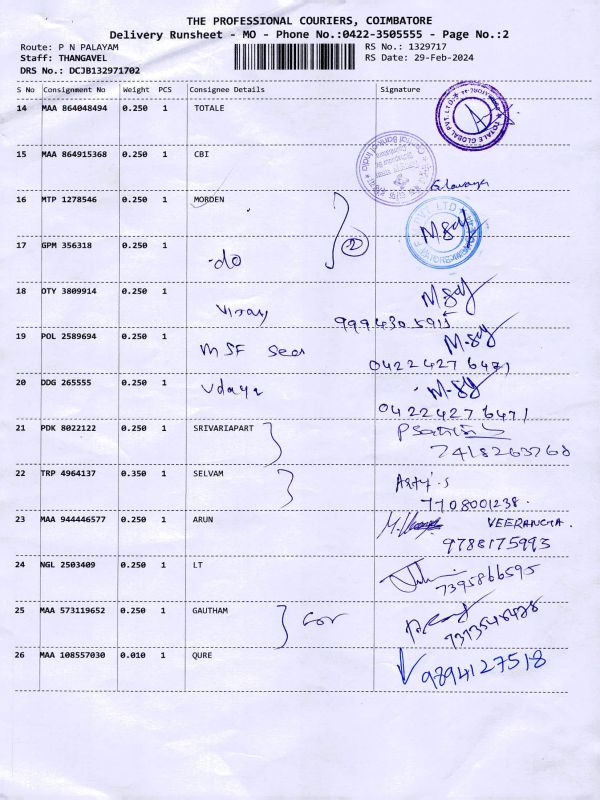 THE PROFESSIONAL COURIERS, COIMBATORE
Delivery Runsheet - MO - Phone No.:0422-3505555 - Page No.:2
Route: P N PALAYAM RS No.: 1329717
Staff: THANGAVEL RS Date: 29-Feb-2024
DRS No.: DCJB132971702
S No Consignment No Weight PCS Consignee Details Signature
14 MAA 864048494 0.250 1 TOTALE
TOTALE GLOBAL PVT. LTD.
15 MAA 864915368 0.250 1 CBI
Central Bank of India
16 MTP 1278546 0.250 1 MORDEN
2
17 GPM 356318 0.250 1
-do
18 DTY 3809914 0.250 1
Vijay 9994305915
19 POL 2589694 0.250 1
MSF 0422 427 6471
20 DDG 265555 0.250 1
Udaya 0422 427 6471
21 PDK 8022122 0.250 1 SRIVARIAPART
7418263760
22 TRP 4964137 0.350 1 SELVAM
7708001238.
23 MAA 944446577 0.250 1 ARUN
9788175993
24 NGL 2503409 0.250 1 LT
7395866595
25 MAA 573119652 0.250 1 GAUTHAM
26 MAA 108557030 0.010 1 QURE
9894127518